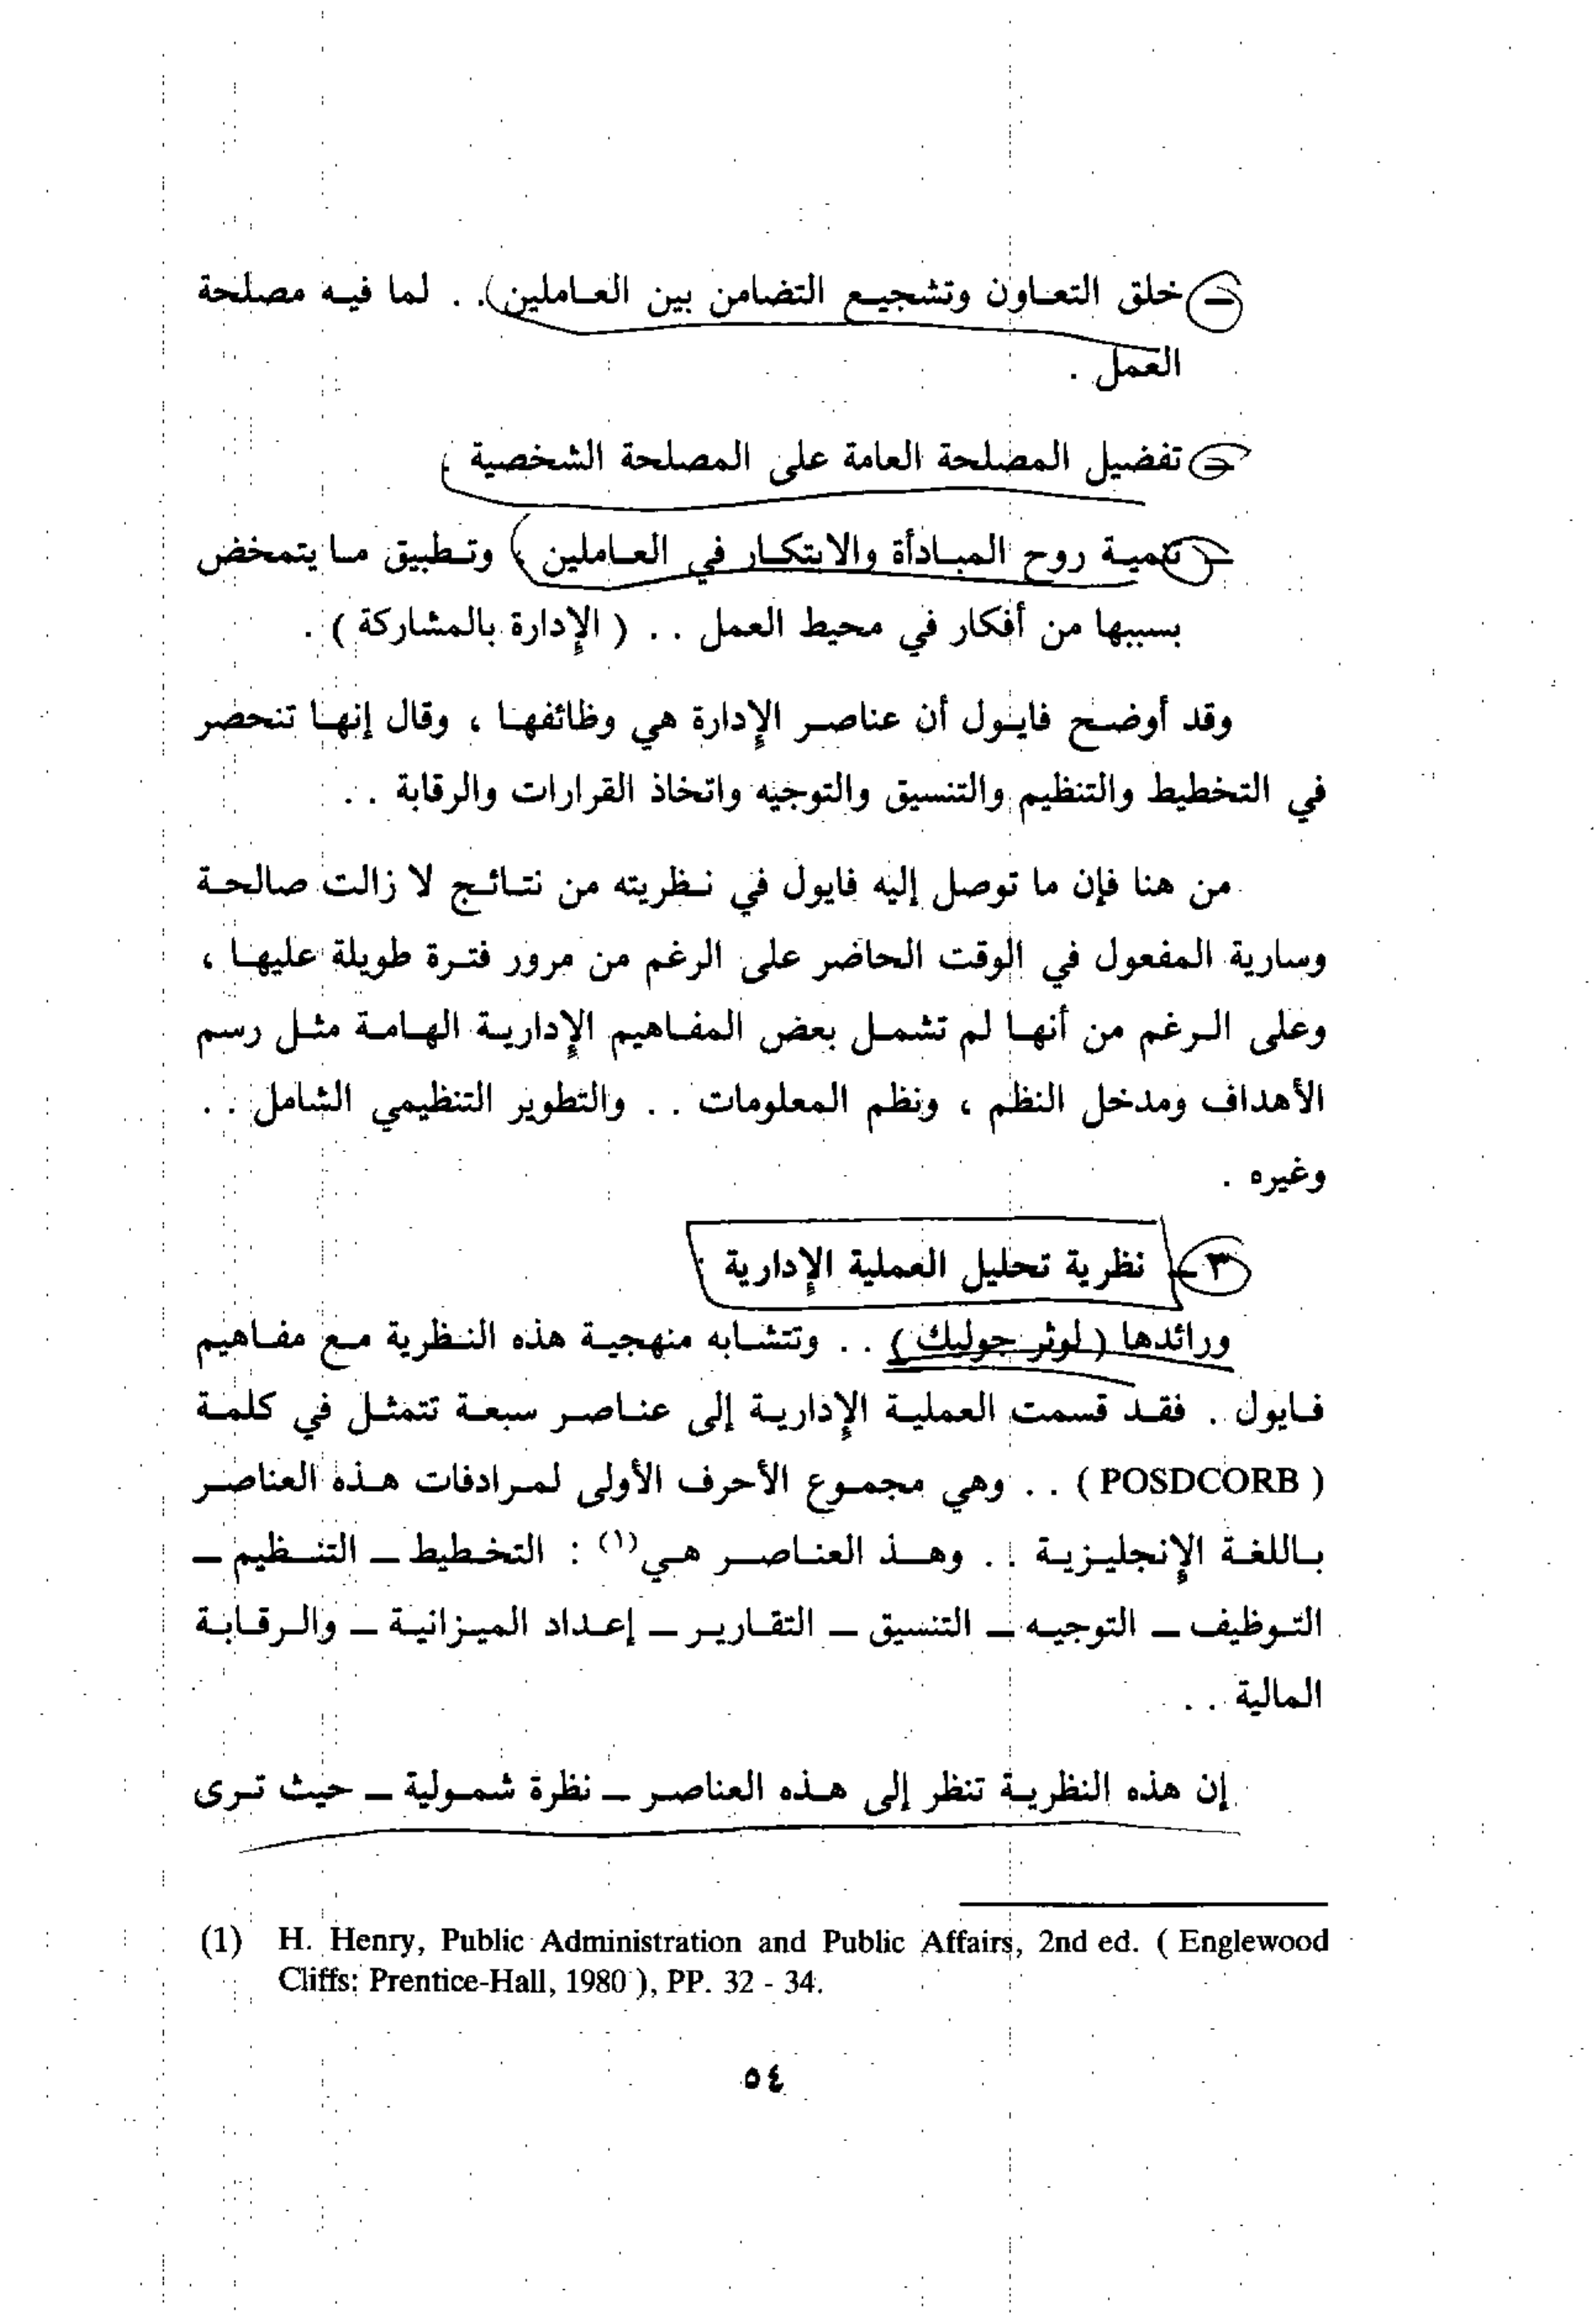 ـ خلق التعاون وتشجيع التضامن بين العاملين . . لما فيه مصلحة
العمل .
ـ تفضيل المصلحة العامة على المصلحة الشخصية .
ـ تنمية روح المبادأة والابتكار في العاملين ، وتطبيق ما يتمخض
بسببها من أفكار في محيط العمل . . ( الإدارة بالمشاركة ) .
وقد أوضح فايول أن عناصر الإدارة هي وظائفها ، وقال إنها تنحصر
في التخطيط والتنظيم والتنسيق والتوجيه واتخاذ القرارات والرقابة . .
من هنا فإن ما توصل إليه فايول في نظريته من نتائج لا زالت صالحة
وسارية المفعول في الوقت الحاضر على الرغم من مرور فترة طويلة عليها ،
وعلى الرغم من أنها لم تشمل بعض المفاهيم الإدارية الهامة مثل رسم
الأهداف ومدخل النظم ، ونظم المعلومات . . والتطوير التنظيمي الشامل . .
وغيره .
٣ ـ نظرية تحليل العملية الإدارية :
ورائدها ( لوثر جوليك ) . . وتتشابه منهجية هذه النظرية مع مفاهيم
فايول . فقد قسمت العملية الإدارية إلى عناصر سبعة تتمثل في كلمة
( POSDCORB ) . . وهي مجموع الأحرف الأولى لمرادفات هذه العناصر
باللغة الإنجليزية . . وهذ العناصر هي(١) : التخطيط ـ التنظيم ـ
التوظيف ـ التوجيه ـ التنسيق ـ التقارير ـ إعداد الميزانية ـ والرقابة
المالية . .
إن هذه النظرية تنظر إلى هذه العناصر ـ نظرة شمولية ـ حيث ترى
(1) H. Henry, Public Administration and Public Affairs, 2nd ed. ( Englewood
Cliffs: Prentice-Hall, 1980 ), PP. 32 - 34.
٥٤